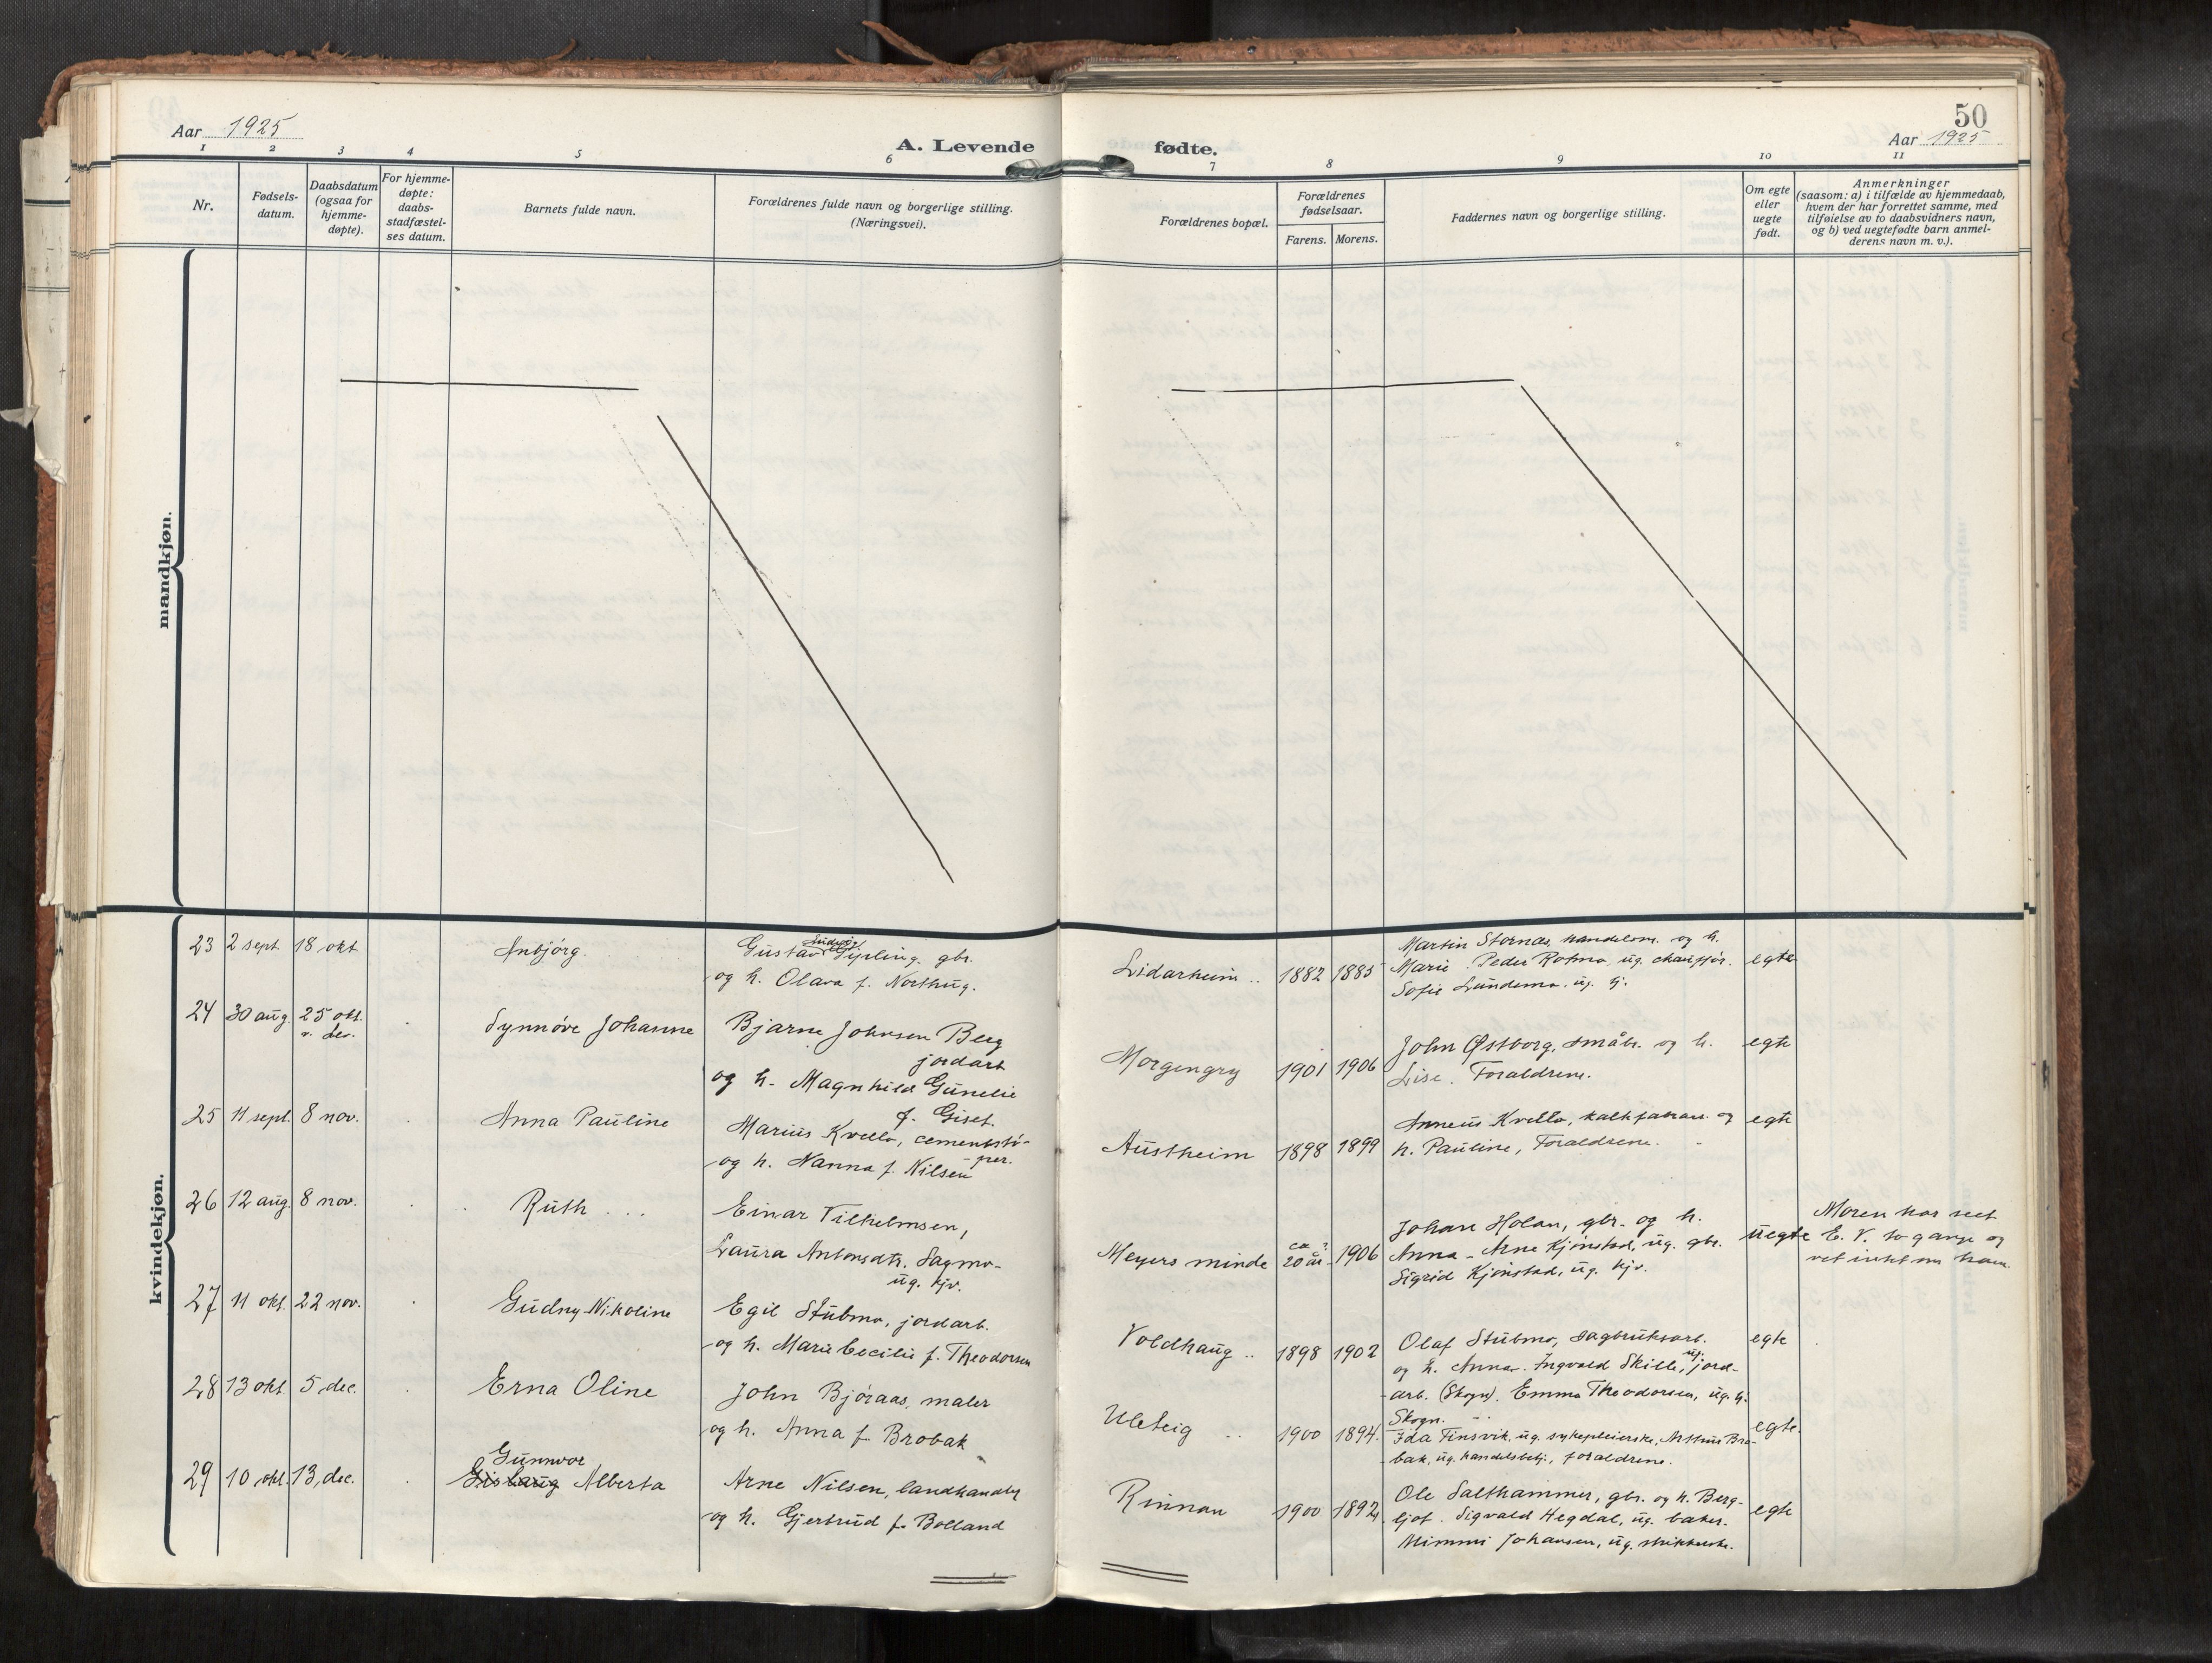 50
Aar 1925
A. Levende
fødte.
Aar 1925
1 2 3 4 5 6 7 8 9 10 11
Nr.
Fødsels-
datum.
Daabsdatum
(ogsaa for
hjemme-
døpte).
For hjemme-
døpte:
daabs-
stadfæstel-
ses datum.
Barnets fulde navn.
Forældrenes fulde navn og borgerlige stilling.
(Næringsvei).
Forældrenes bopæl.
Forældrenes
fødselsaar.
Farens. Morens.
Faddernes navn og borgerlige stilling.
Om egte
eller
uegte
født.
Anmerkninger
(saasom: a) i tilfælde av hjemmedaab,
hvem der har forrettet samme, med
tilføielse av to daabsvidners navn,
og b) ved uegtefødte barn anmel-
derens navn m. v.).
mandkjøn.
kvindekjøn.
23 2 sept 18 okt
Anbjörg.
Ludvig
Gustav Gipling. gbr.
og h. Olava f. Norhug.
Lidarheim .. 1882 1885
Martin Stornas, handelsm. og h.
Marie. Peder Rotmo, ug. chauffør.
Sofie Lundemo, ug. tj.
egte
24 30 aug. 25 okt.
Synnöve Johanne
Bjarne Johnsen Berg
jordarb
og h. Magnhild Gunelie
f. Giset.
Morgengry 1901 1906
John Østborg, småbr. og h.
Lise. Foraldrene.
egte
25 11 sept. 8 nov.
Anna Pauline
Marius Kvello, cementstö-
per.
og h. Nanna f. Nilsen
Austheim 1898 1899
Anneus Kvello, kalkfabrar. og
h. Pauline, Foraldrene.
egte
26 12 aug. 8 nov.
Ruth ...
Einar Vilhelmsen,
Laura Antonsdtr. Sagmo-
ug. kjv.
Meyers minde
ca ?
20 år 1906
Johan Holan, gbr. og h.
Anna - Arne Kjönstad, ug. gbr.
Sigrid Kjönstad, ug. kjv.
uegte
Moren har seet
E. V. to gange og
vet intet om ham.
27 11 okt. 22 nov.
Gudny Nikoline
Egil Stubmo, jordarb.
og h. Marie Cecilie f. Theodorsen
Voldhaug .. 1898 1902
Olaf Stubmo, sagbruksarb.
og h. Anna. Ingvald Skille, ug. jord-
arb. (Skogn). Emma Theodorsen, ug. tj.
Skogn.
egte
28 13 okt. 5, dec.
Erna Oline
John Björaas, maler
og h. Anna f. Brobak
Ulsteig .. 1900 1894.
Ida Finsvik, ug. sykepleierske, Arthur Bro-
bak, ug. handelsbetj., foraldrene.
egte.
29 10 okt. 13, dec.
Gunnvor
Gislaug Alberta
Arne Nilsen, landhandler
og h. Gjertrud f. Bolland
Rinnan 1900 1892
Ole Salthammer, gbr. og h. Berg-
ljot. Sigvald Hegdal, ug. baker.
Mimmi Johansen, ug. strikkerske.
egte